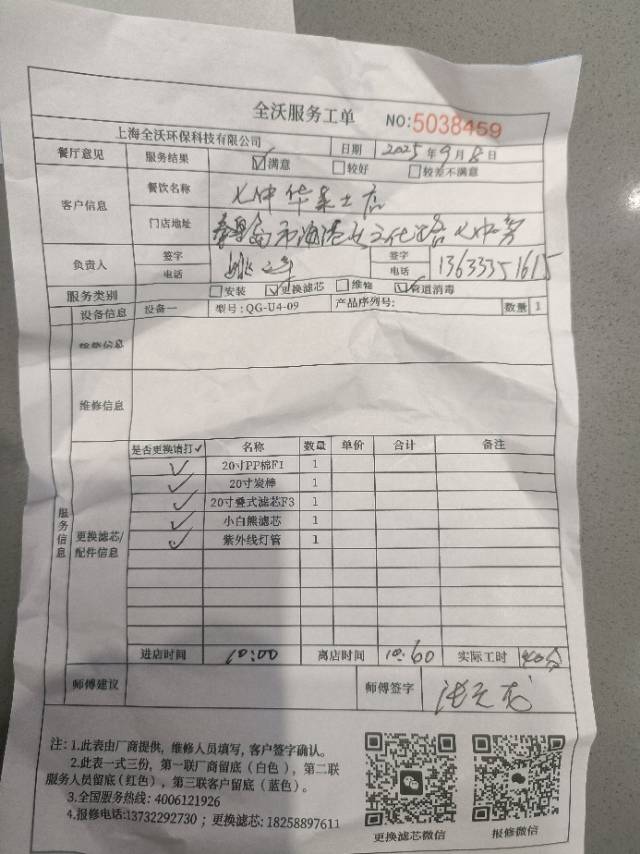 全沃服务工单 NO:5038459
上海全沃环保科技有限公司 日期 2025年9月8日
餐厅意见 服务结果 ☑满意 ☐较好 ☐较差不满意
客户信息 餐饮名称 七中华莱士店
门店地址 秦皇岛市海港区文化路七中旁
负责人 签字 签字
电话 电话 13633351615
服务类别 ☐安装 ☑更换滤芯 ☐维修 ☑管道消毒
设备信息 设备一 型号:QG-U4-09 产品序列号: 数量 1
维修信息
服务信息
更换滤芯/配件信息
是否更换请打✓ 名称 数量 单价 合计 备注
✓ 20寸PP棉F1 1
✓ 20寸炭棒 1
✓ 20寸叠式滤芯F3 1
✓ 小白熊滤芯 1
✓ 紫外线灯管 1
进店时间 10:00 离店时间 10:60 实际工时
师傅建议 师傅签字
注: 1.此表由厂商提供，维修人员填写，客户签字确认。
2.此表一式三份，第一联厂商留底（白色），第二联
服务人员留底(红色)，第三联客户留底（蓝色）。
3.全国服务热线: 4006121926
4.报修电话:13732292730；更换滤芯: 18258897611
更换滤芯微信 报修微信